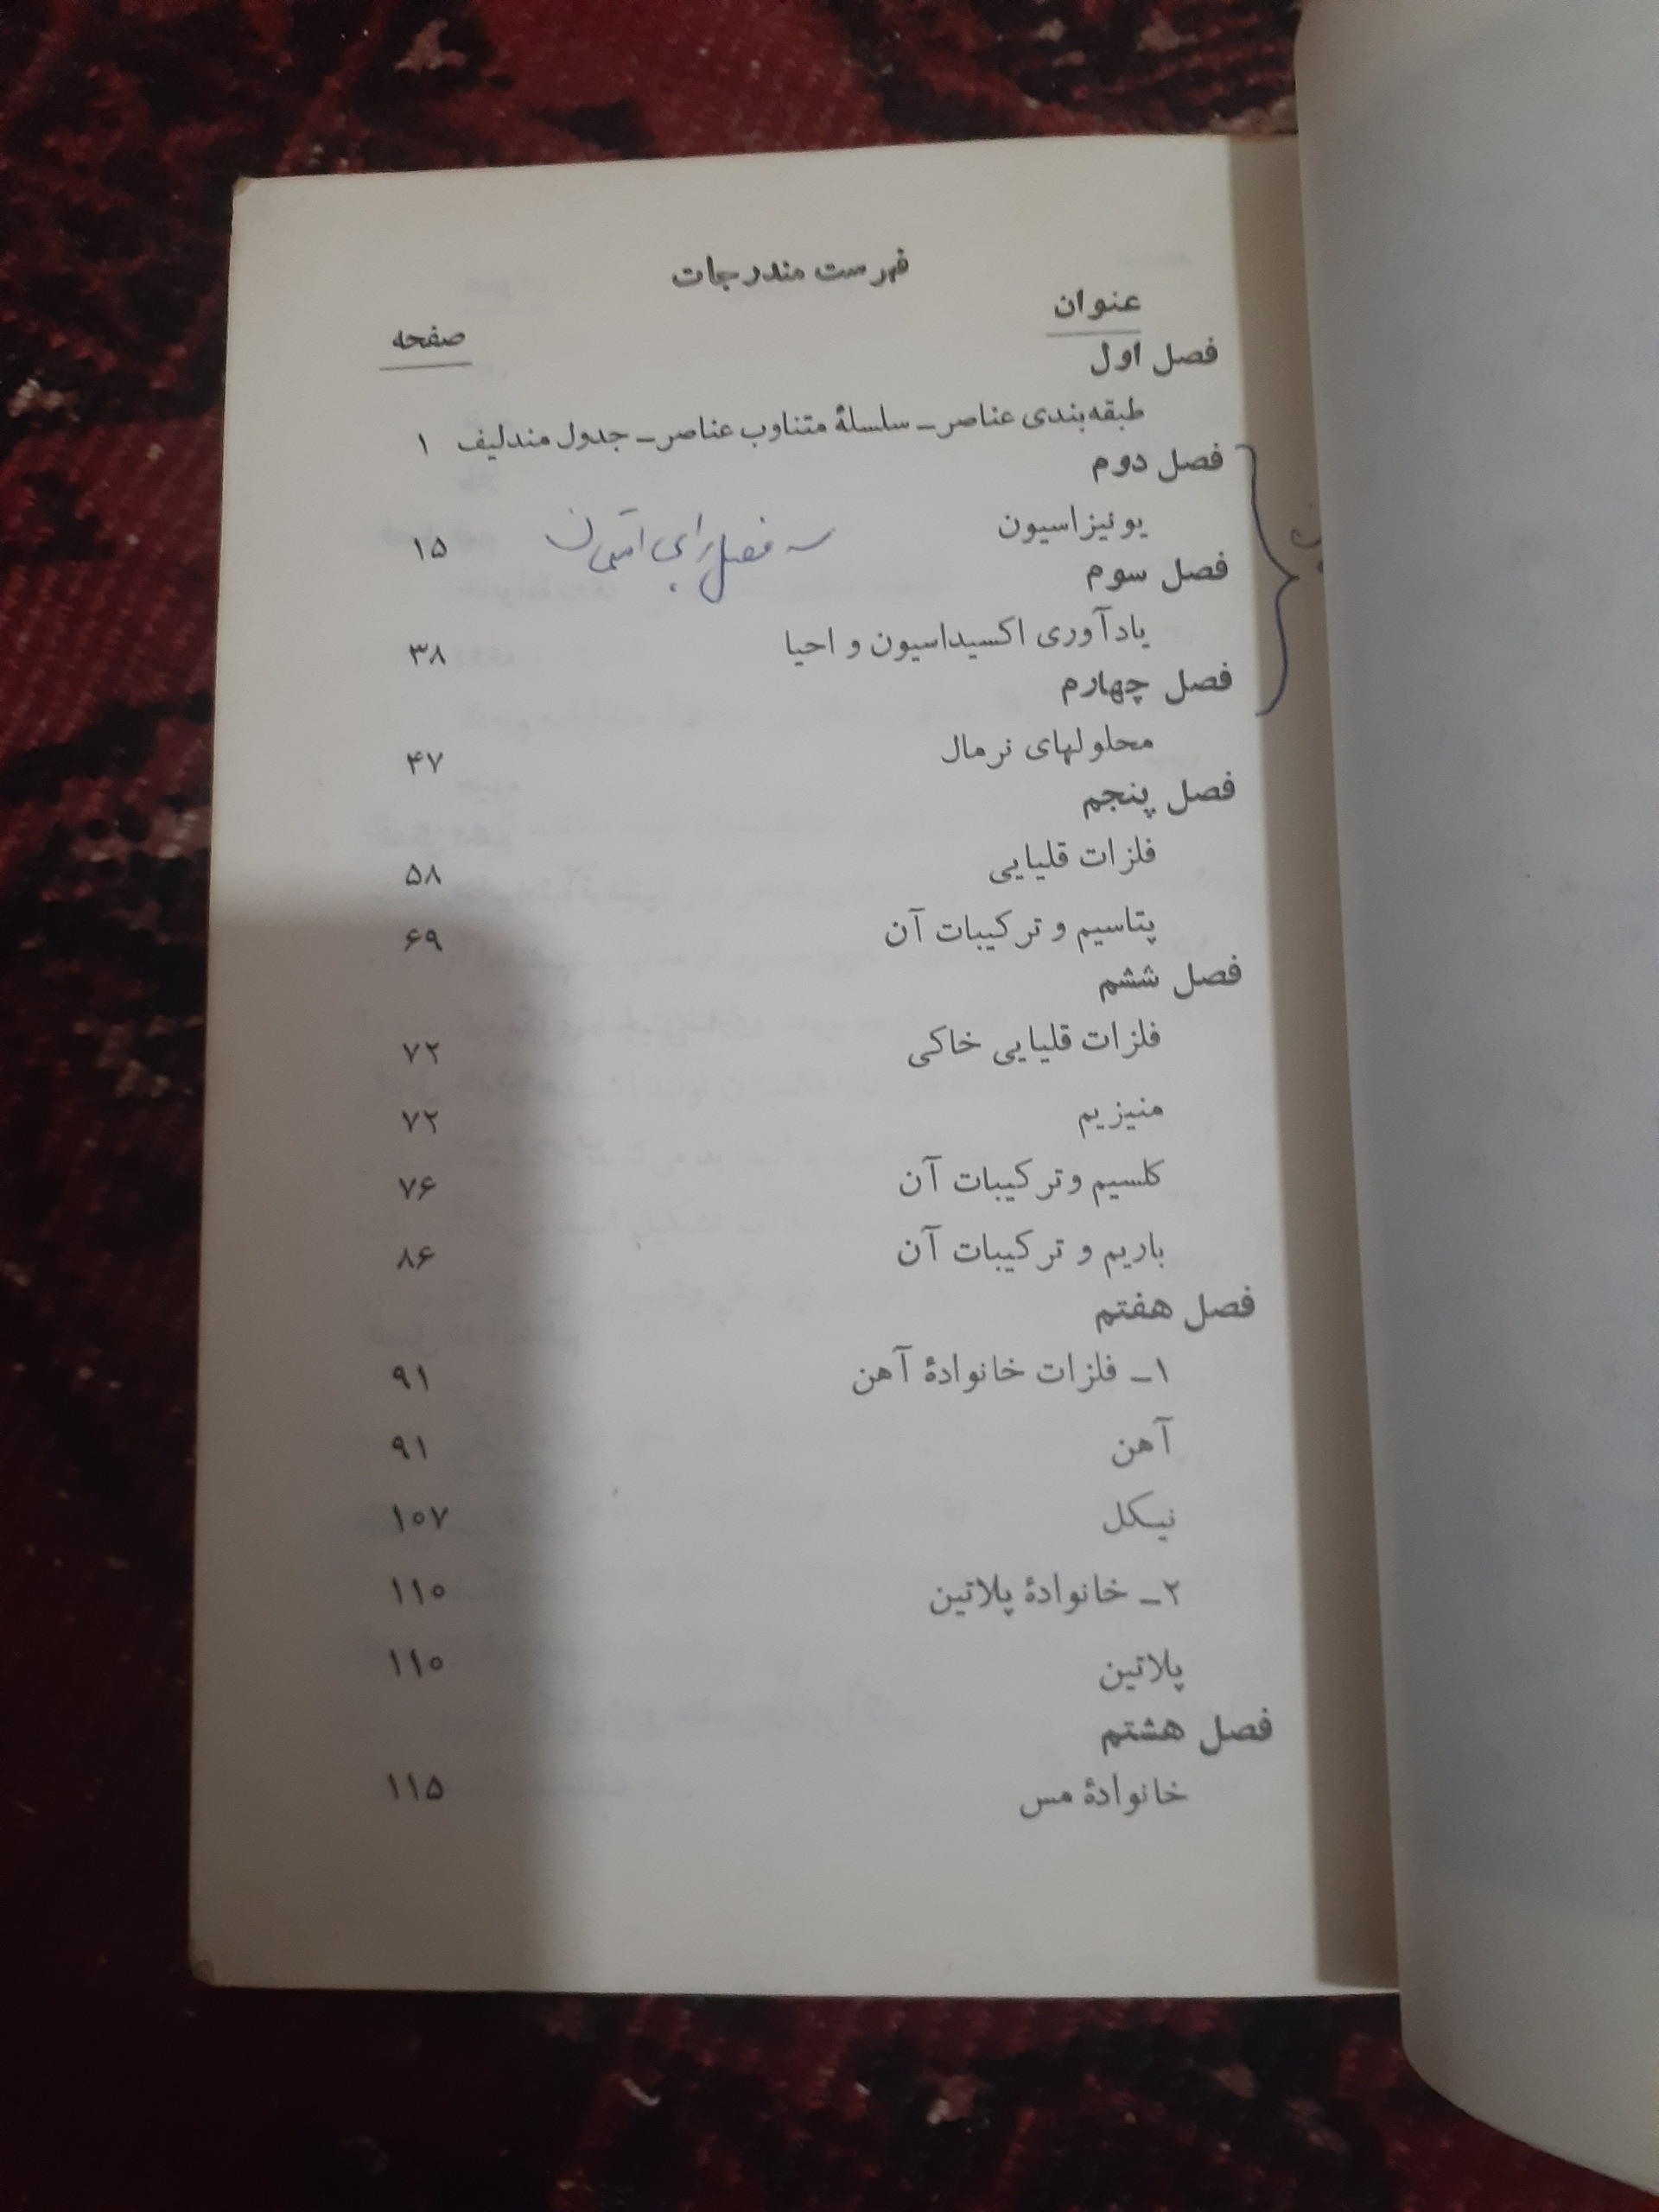 فهرست مندرجات
عنوان
صفحه
فصل اول
طبقه‌بندی عناصر ـ سلسلهٔ متناوب عناصر ـ جدول مندلیف ۱
فصل دوم
یونیزاسیون ۱۵
سه فصل برای امتحان
فصل سوم
یادآوری اکسیداسیون و احیا ۳۸
فصل چهارم
محلولهای نرمال ۴۷
فصل پنجم
فلزات قلیایی ۵۸
پتاسیم و ترکیبات آن ۶۹
فصل ششم
فلزات قلیایی خاکی ۷۲
منیزیم ۷۲
کلسیم و ترکیبات آن ۷۶
باریم و ترکیبات آن ۸۶
فصل هفتم
۱ـ فلزات خانوادهٔ آهن ۹۱
آهن ۹۱
نیکل ۱۰۷
۲ـ خانوادهٔ پلاتین ۱۱۰
پلاتین ۱۱۰
فصل هشتم
خانوادهٔ مس ۱۱۵